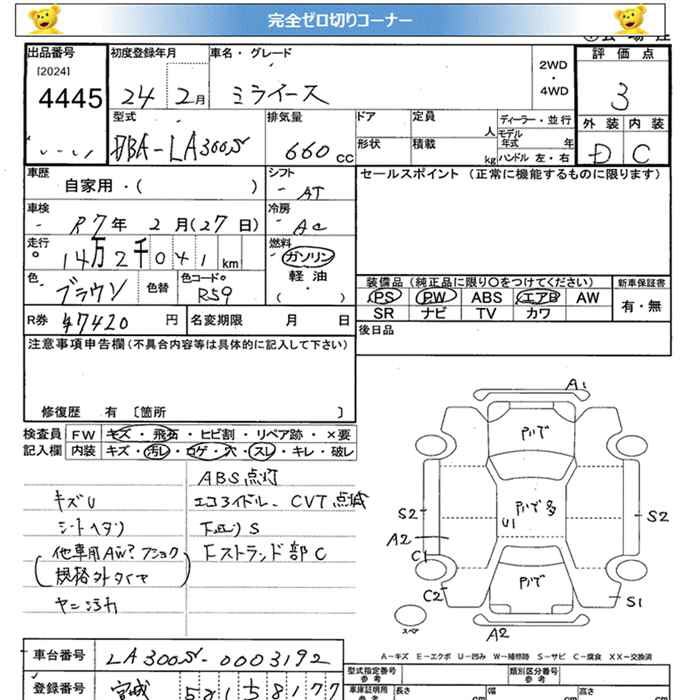 完全ゼロ切りコーナー
出品番号 初度登録年月 車名・グレード 評価点
[2024]
4445 24 2月 ミライース 2WD・4WD 3
型式 排気量 ドア 定員 人 ディーラー・並行 外装 内装
DBA-LA300S 660cc 形状 積載 kg モデル年式 年 D C
ハンドル 左・右
車歴 自家用・( ) シフト AT セールスポイント(正常に機能するものに限ります)
車検 R7年 2月(27日) 冷房 AC
走行 14万2千041km 燃料 ガソリン
軽油
色 ブラウン 色替 色コードNo R59 ( ・ )
装備品(純正品に限り○をつけてください) 新車保証書
PS PW ABS エアB AW 有・無
SR ナビ TV カワ
R券 ¥7420円 名変期限 月 日 後日品
注意事項申告欄(不具合内容等は具体的に記入して下さい)
修復歴 有 [箇所 ]
検査員 FW キズ・飛石・ヒビ割・リペア跡・×要
記入欄 内装 キズ・汚レ・コゲ・穴・スレ・キレ・破レ
ABS点灯
キズU エコアイドル、CVT点滅
シートヘタリ 下廻りS
他車用AW?
規格外タイヤ Fストランド部C
A1
Pハゲ
Pハゲ多
U1
S2 S2
A2
C1
Pハゲ
C2 S1
スペア
A2
A-キズ E-エクボ U-凹み W-補修跡 S-サビ C-腐食 XX-交換済
車台番号 LA300S-0003192
登録番号 宮城 581 5 8177
型式指定番号 参考 類別区分番号 参考
車庫証明用 参考 長さ cm 幅 cm 高さ cm